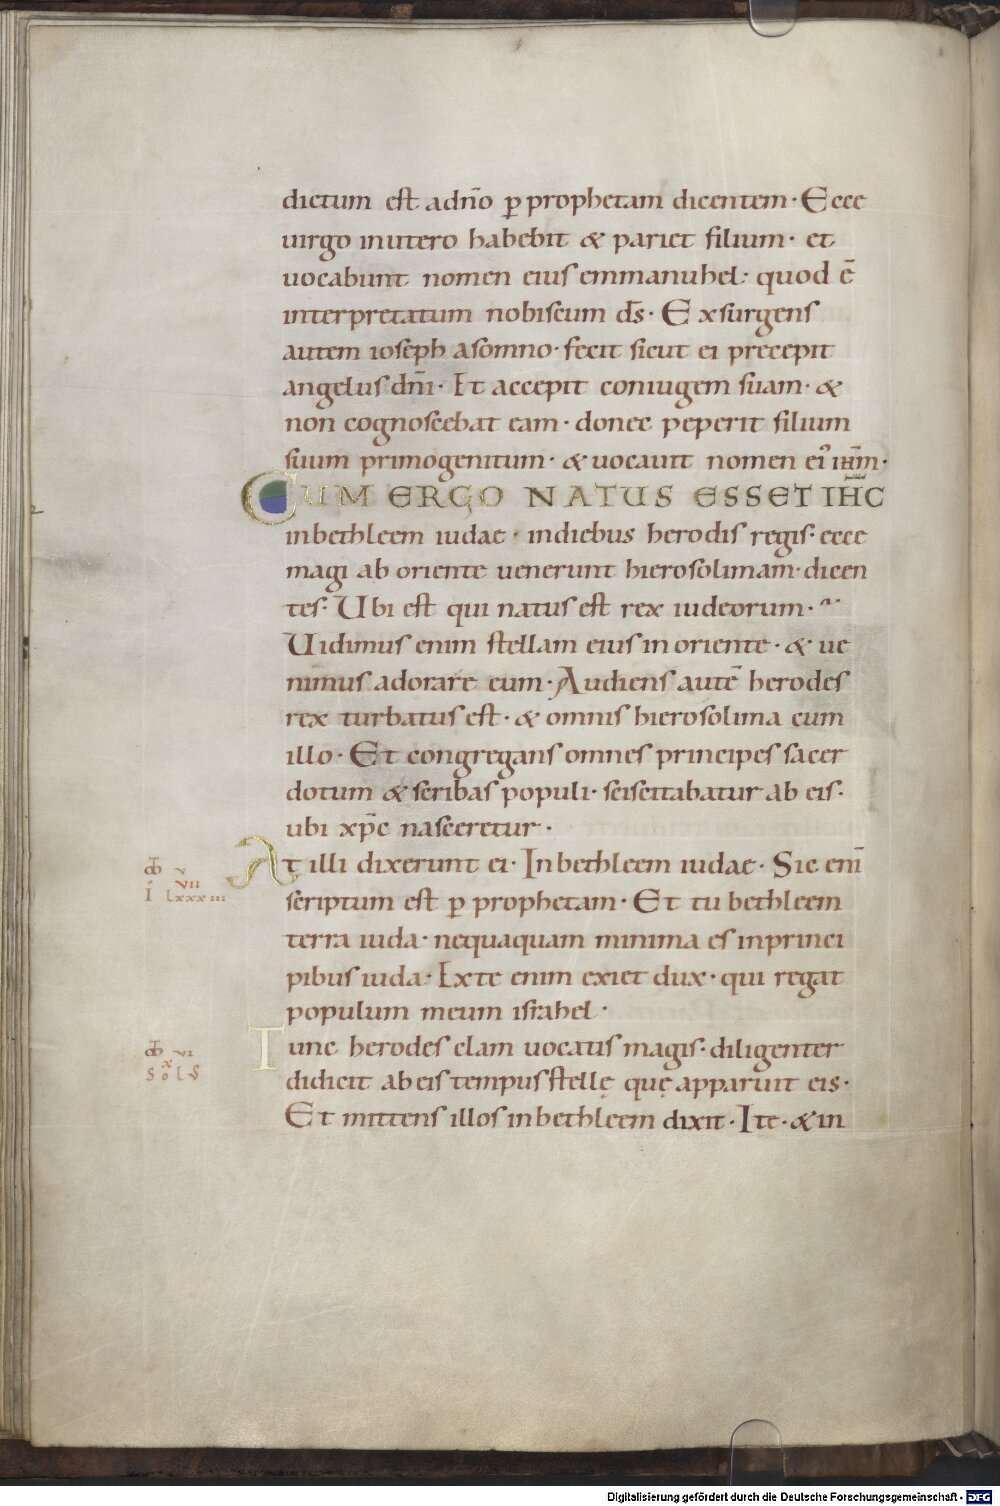 dictum est adnō p̱ prophetam dicentem· Ecce
uirgo inutero habebit & pariet filium· et
uocabunt nomen eius emmanuhel: quod ē
interpretatum nobiscum d̄s· Exsurgens
autem ioseph asomno· fecit sicut ei precepit
angelus dn̄i· Et accepit coniugem suam· &
non cognoscebat eam· donec peperit filium
suum primogenitum· & uocauit nomen ei᾿ ih̄m·
CUM ERGO NATUS ESSET IH̄C
inbethleem iudae· indiebus herodis regis· ecce
magi ab oriente uenerunt hierosolimam· dicen
tes· Ubi est qui natus est rex iudeorum·
Uidimus enim stellam eius in oriente· & ue
nimus adorare eum· Audiens autē herodes
rex turbatus est· & omnis hierosolima cum
illo· Et congregans omnes principes sacer
dotum & scribas populi· sciscitabatur ab eis·
ubi xp̄c nasceretur·
At illi dixerunt ei· Inbethleem iudae· Sic eni̅
v
VII
I lxxxiii
scriptum est p̱ prophetam· Et tu bethleem
terra iuda· nequaquam minima es inprinci
pibus iuda· Exte enim exiet dux· qui regat
populum meum israhel·
Tunc herodes clam uocatis magis· diligenter
vi
x
didicit ab eis tempus stellę quę apparuit eis·
Et mittens illos inbethleem dixit· Ite· & in
Digitalisierung gefördert durch die Deutsche Forschungsgemeinschaft - DFG